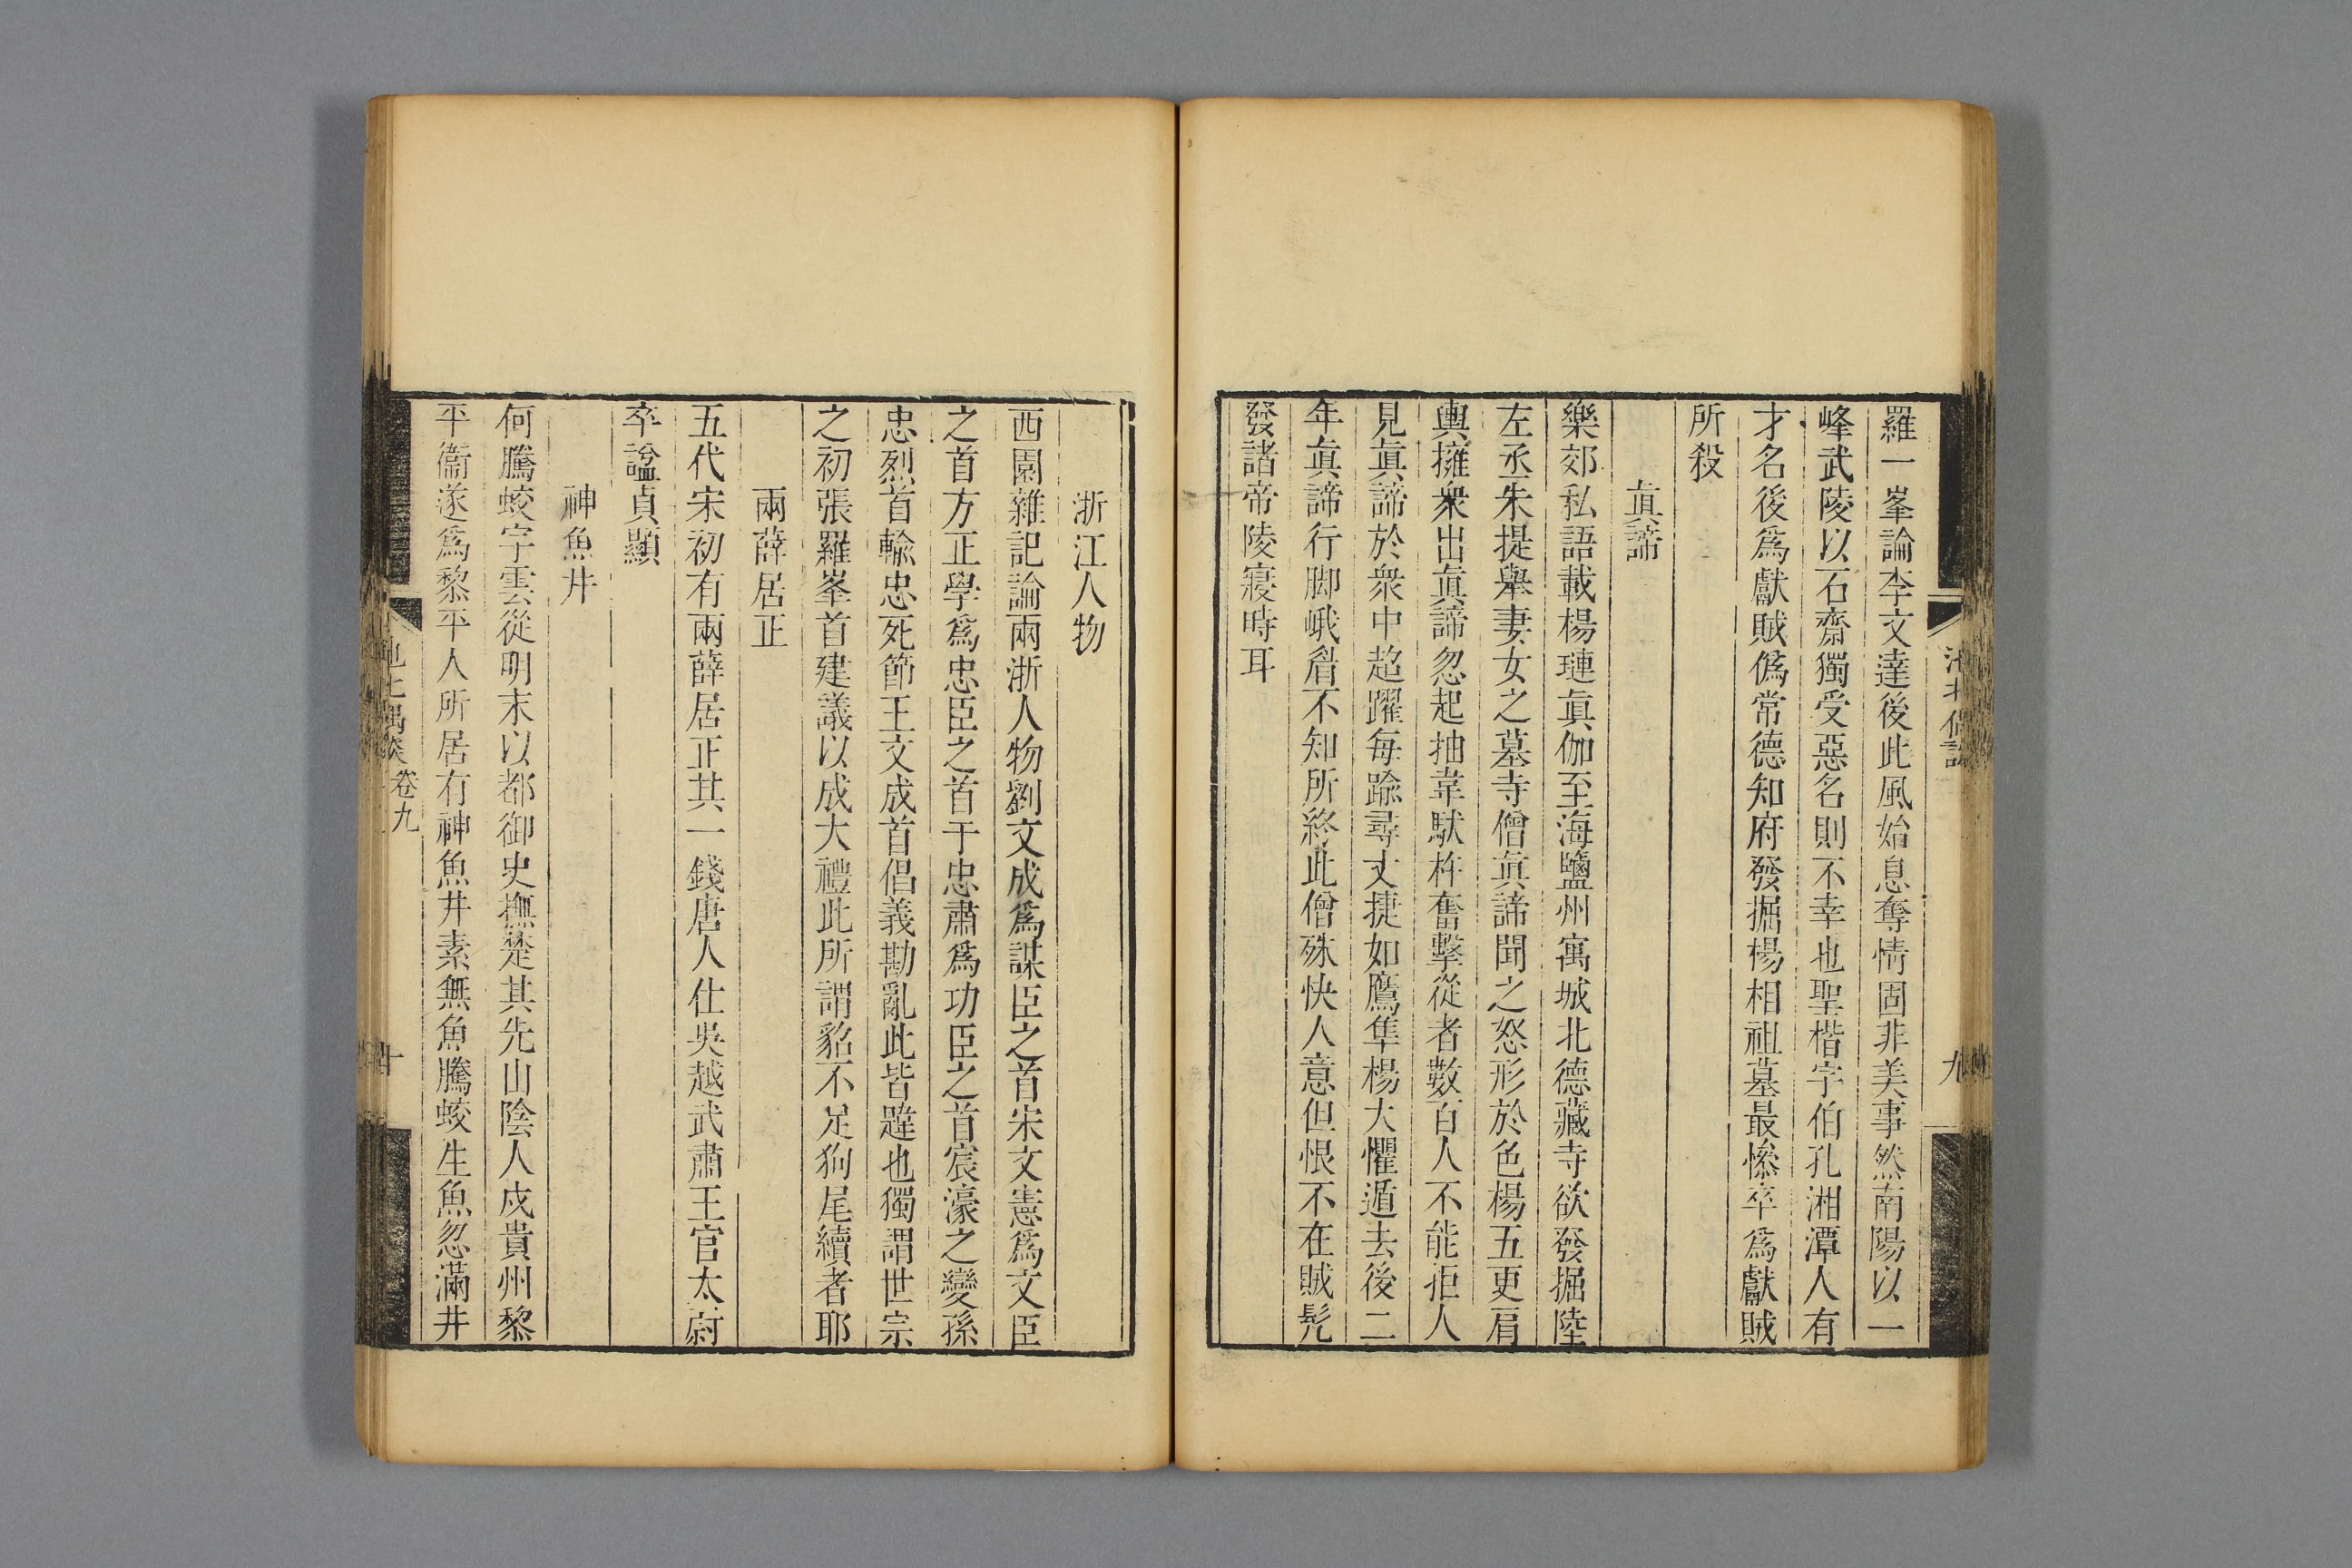 羅一峯論李文達後此風始息奪情固非美事然南陽以一
峰武陵以石齋獨受惡名則不幸也聖楷字伯孔湘潭人有
才名後爲獻賊僞常德知府發掘楊相祖墓最慘卒爲獻賊
所殺
眞諦
樂郊私語載楊璉眞伽至海鹽州寓城北德藏寺欲發掘陸
左丞朱提舉妻女之墓寺僧眞諦聞之怒形於色楊五更肩
輿擁衆出眞諦忽起抽韋馱杵奮擊從者數百人不能拒人
見眞諦於衆中超躍每踰尋丈捷如鷹隼楊大懼遁去後二
年眞諦行脚峨眉不知所終此僧殊快人意但恨不在賊髡
發諸帝陵寢時耳
浙江人物
西園雜記論兩浙人物劉文成爲謀臣之首宋文憲爲文臣
之首方正學爲忠臣之首于忠肅爲功臣之首宸濠之變孫
忠烈首輸忠死節王文成首倡義勘亂此皆韙也獨謂世宗
之初張羅峯首建議以成大禮此所謂貂不足狗尾續者耶
兩薛居正
五代宋初有兩薛居正其一錢唐人仕吳越武肅王官太尉
卒謚貞顯
神魚井
何騰蛟字雲從明末以都御史撫楚其先山陰人戍貴州黎
平衞遂爲黎平人所居有神魚井素無魚騰蛟生魚忽滿井
池北偶談
卷九
十
池北偶談
九